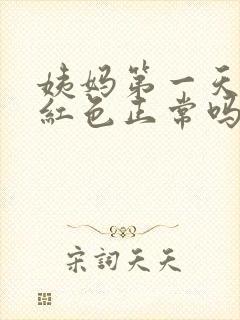 姨妈第一天
红色正常吗
宋詞天天